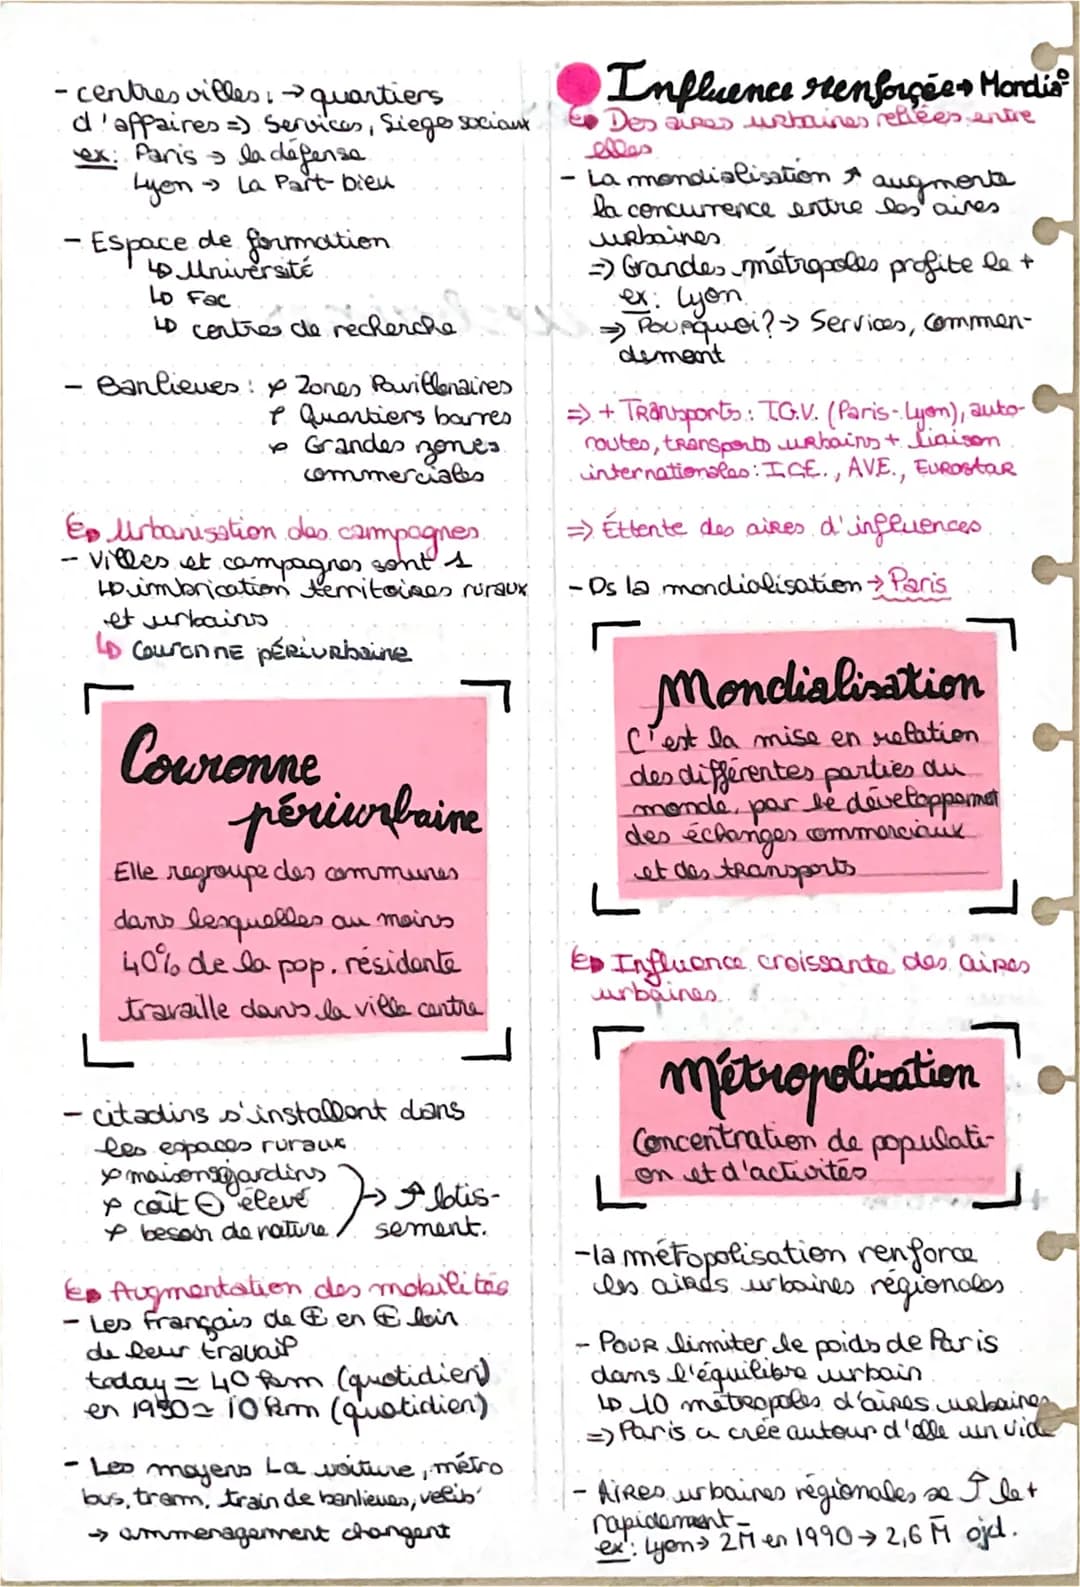 - centres villes : → quartiers
d'affaires => Services, Sieges sociaux
ex: Paris → la défense
Lyon → La Part-bieu
- Espace de formation
↳ Université
↳ Fac
↳ centres de recherche
- Banlieues : Zones Pavillonaires
Quartiers barres
Grandes zones
commerciales
Urbanisation des campagnes
- Villes et campagnes sont 1
↳ imbrication territoires ruraux
et urbains
↳ Couronne périurbaine
Couronne
périurbaine
Elle regroupe des communes
dans lesquelles au moins
40% de la pop. résidante
travaille dans la ville centre
- citadins s'installent dans
les espaces ruraux
maisons jardins
coût ⊖ élevé → ↗ lotis-
besoin de nature sement.
Augmentation des mobilités
- Les français de ⊕ en ⊕ loin
de leur travail
today ≃ 40 km (quotidien)
en 1950 ≃ 10 km (quotidien)
- Les moyens La voiture, métro
bus, tram, train de banlieues, velib'
→ ammenagement changent
Influence renforçée → Mondia°
Des aires urbaines reliées entre
elles
- La mondialisation ↗ augmente
la concurrence entre les aires
urbaines
=> Grandes métropoles profite le +
ex: Lyon
=> Pourquoi? → Services, Comman-
dement
=> + Transports : T.G.V. (Paris-Lyon), auto-
routes, transports urbains + liaison
internationales : ICE., AVE., EUROSTAR
=> Éttente des aires d'influences
- Ds la mondialisation → Paris
Mondialisation
C'est la mise en relation
des différentes parties du
monde, par le développement
des échanges commerciaux
et des transports
Influence croissante des aires
urbaines
Métropolisation
Concentration de populati-
on et d'activités
- la métropolisation renforce
les aires urbaines régionales
- Pour limiter le poids de Paris
dans l'équilibre urbain
↳ 10 métropoles d'aires urbaines
=> Paris a crée autour d'elle un vide
- Aires urbaines régionales se ↑ le +
rapidement
ex: Lyon → 2M en 1990 → 2,6 M ojd.